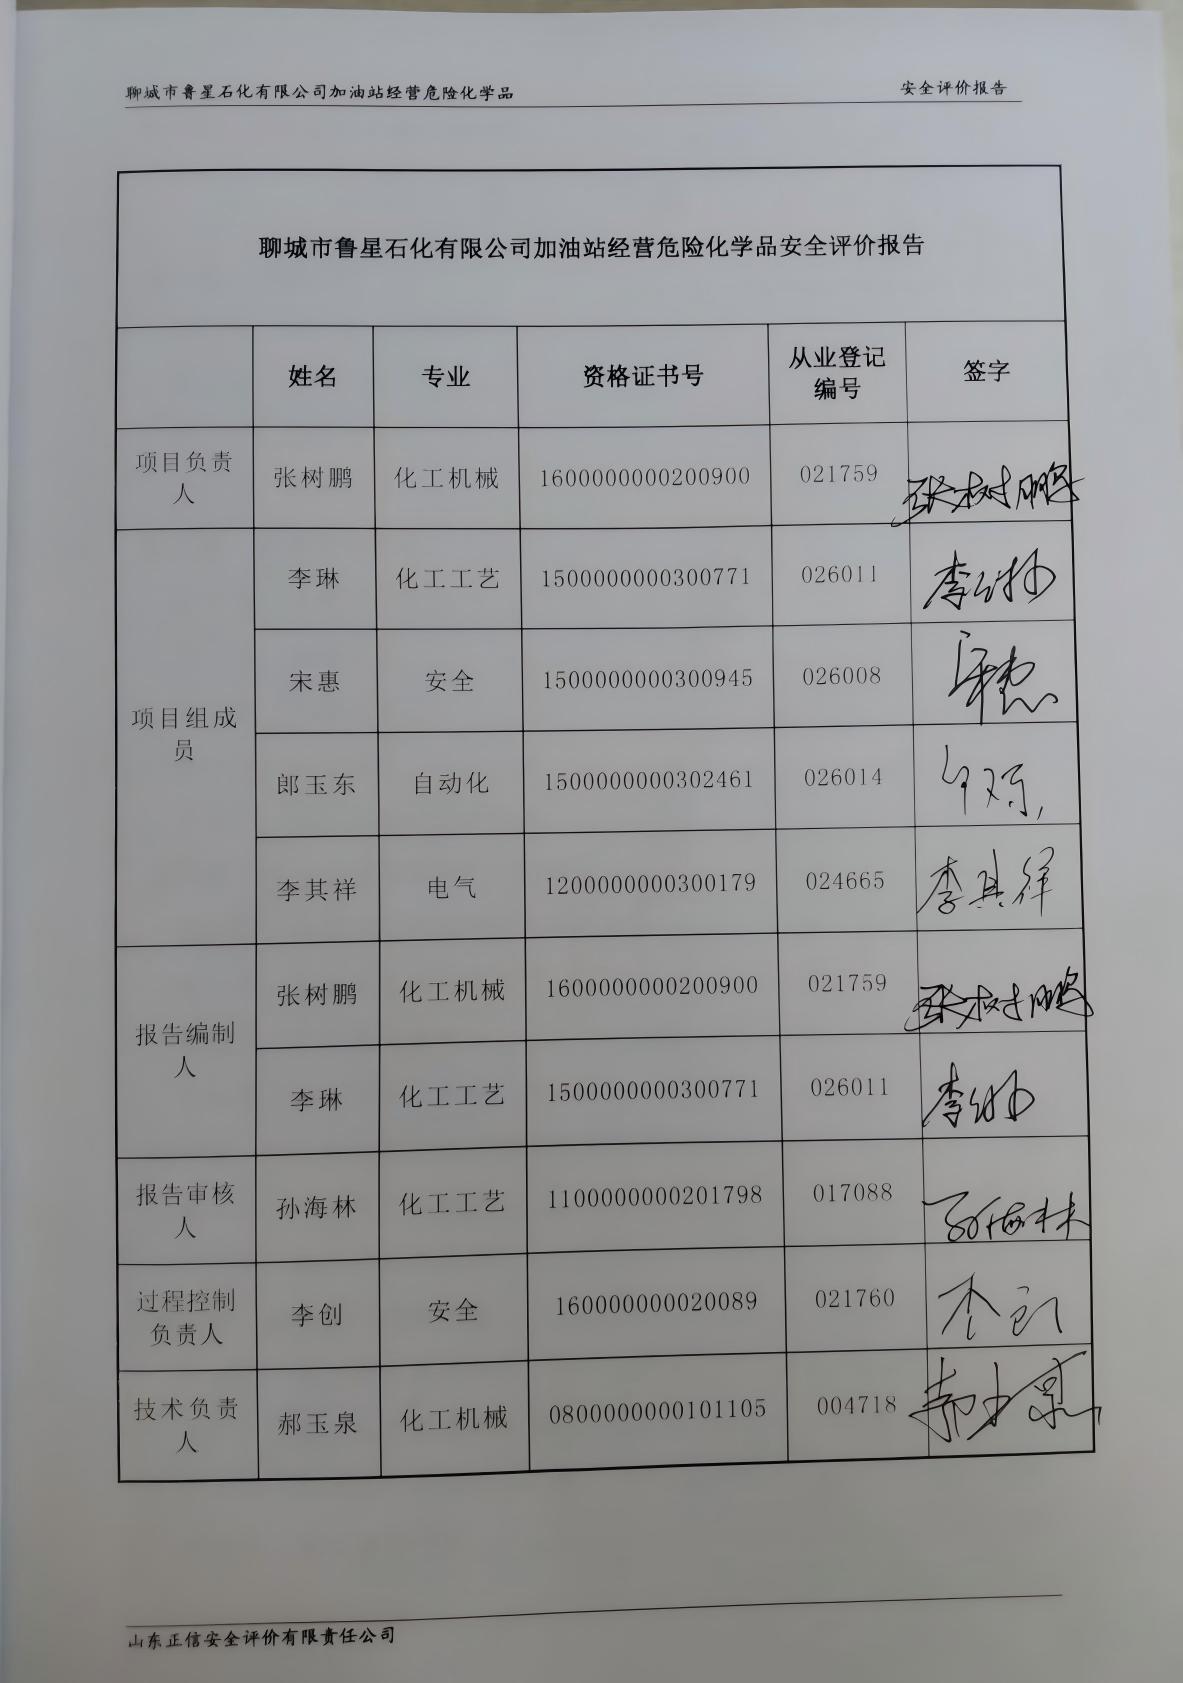 聊城市鲁星石化有限公司加油站经营危险化学品 安全评价报告
聊城市鲁星石化有限公司加油站经营危险化学品安全评价报告
姓名 专业 资格证书号 从业登记编号 签字
项目负责人 张树鹏 化工机械 1600000000200900 021759 张树鹏
项目组成员 李琳 化工工艺 1500000000300771 026011 李琳
宋惠 安全 1500000000300945 026008 宋惠
郎玉东 自动化 1500000000302461 026014
李其祥 电气 1200000000300179 024665 李其祥
报告编制人 张树鹏 化工机械 1600000000200900 021759 张树鹏
李琳 化工工艺 1500000000300771 026011 李琳
报告审核人 孙海林 化工工艺 1100000000201798 017088 孙海林
过程控制负责人 李创 安全 160000000020089 021760 李创
技术负责人 郝玉泉 化工机械 0800000000101105 004718
山东正信安全评价有限责任公司